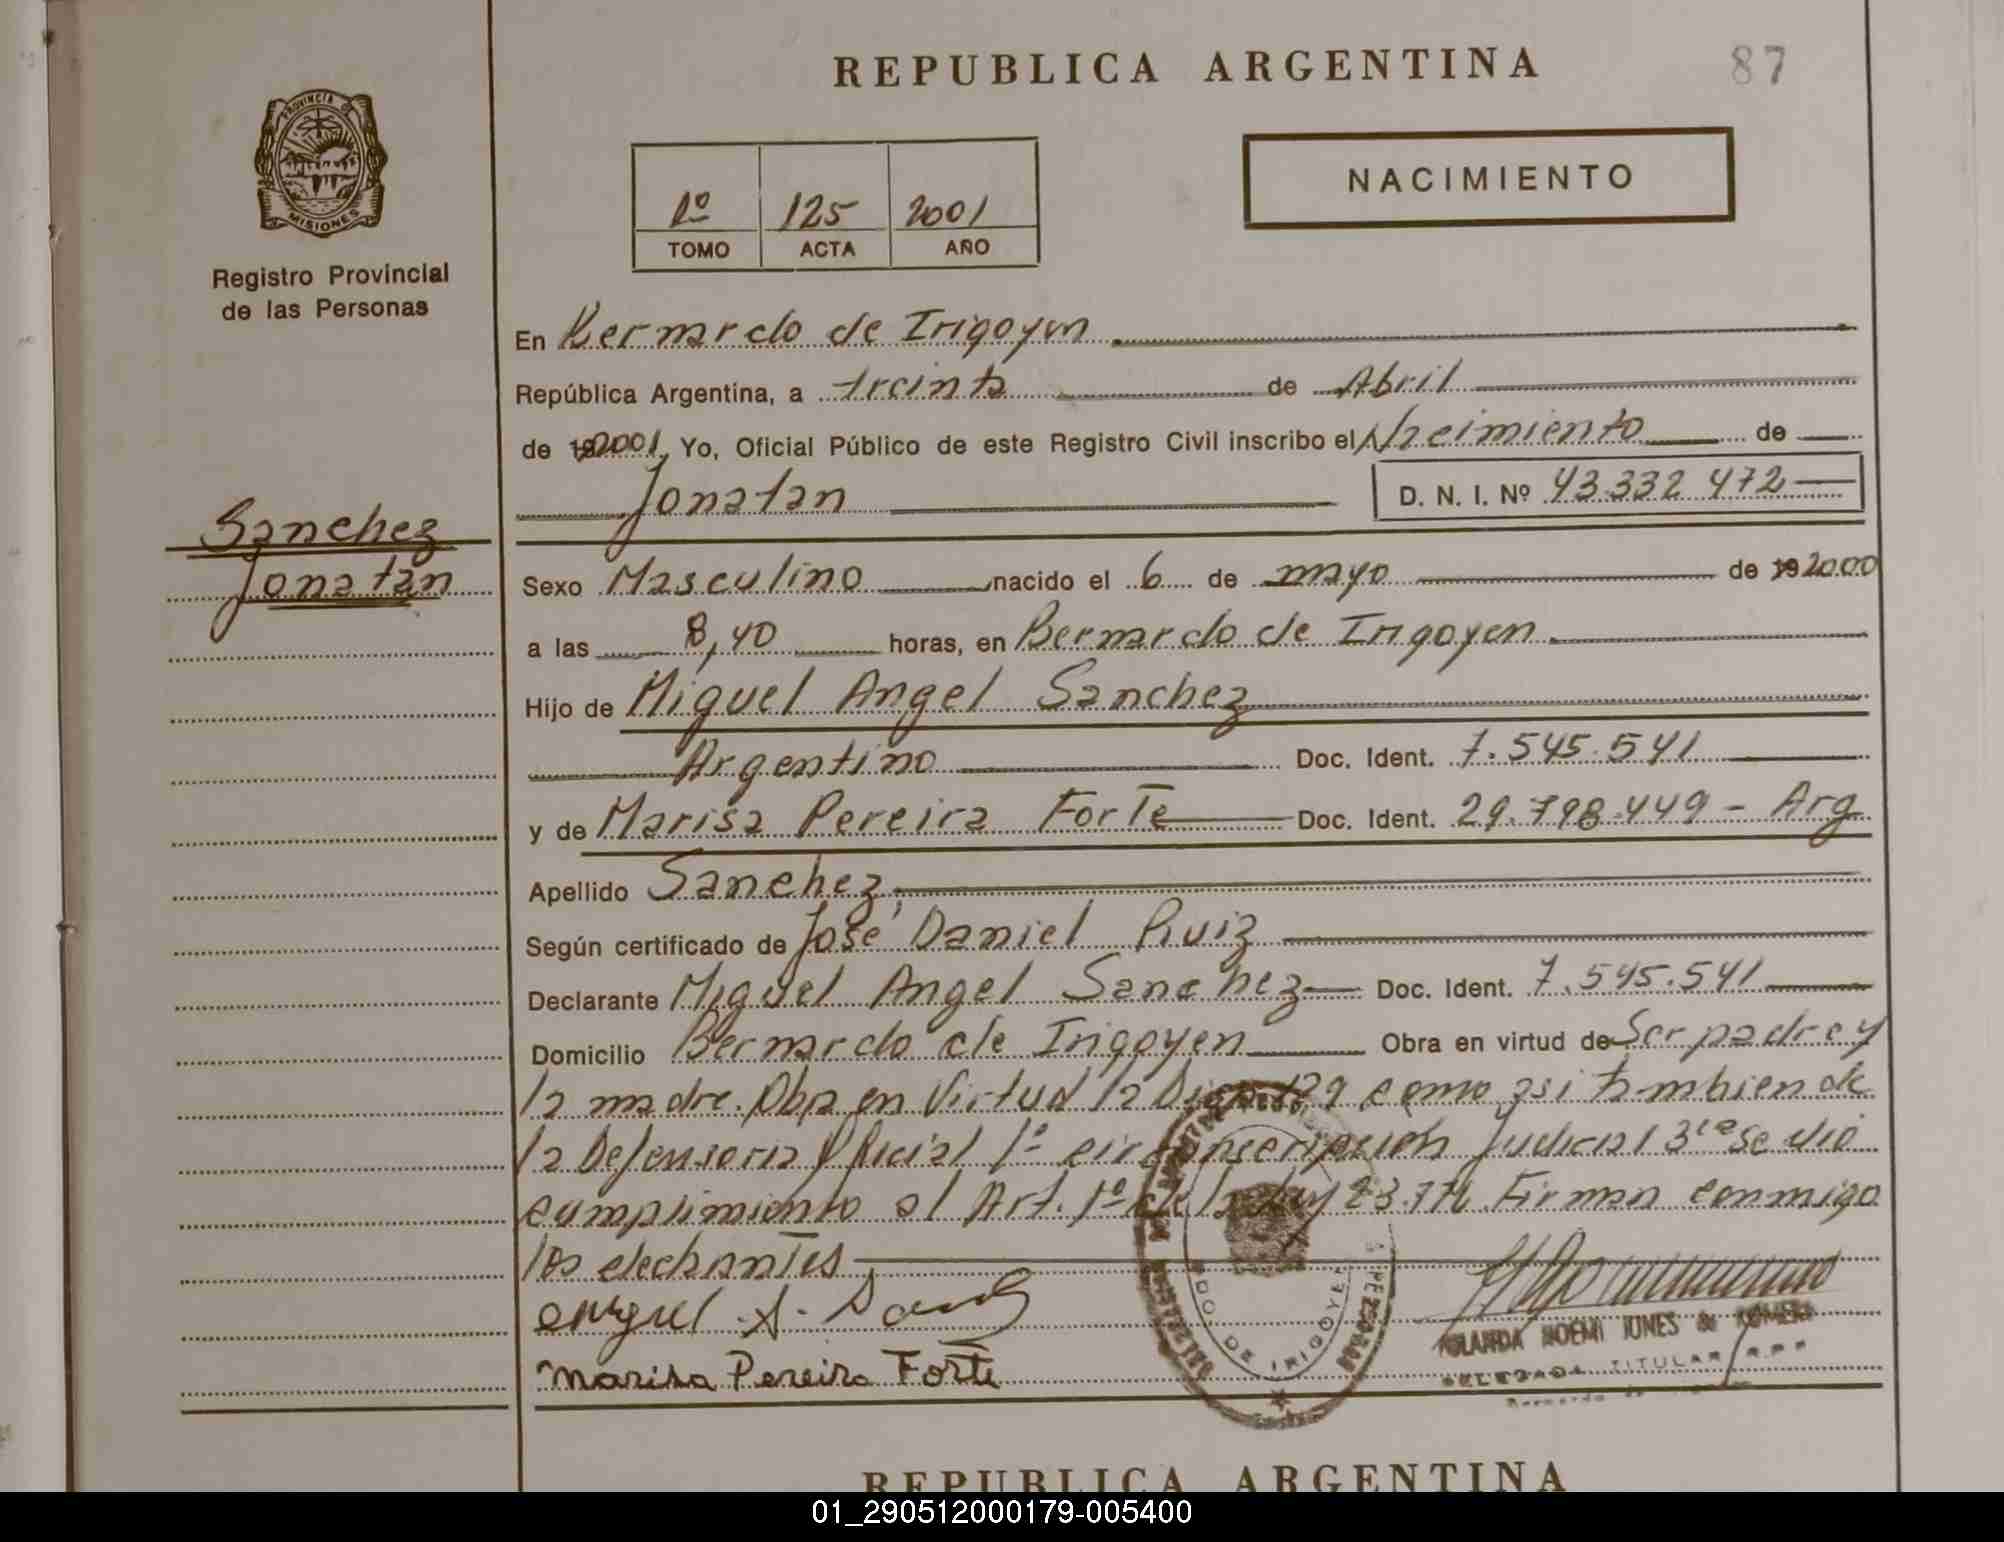 REPUBLICA ARGENTINA
87
PROVINCIA DE
MISIONES
Registro Provincial
de las Personas
1º 125 2001
TOMO ACTA AÑO
NACIMIENTO
En Bernardo de Irigoyen
República Argentina, a treinta de Abril
de 192001, Yo, Oficial Público de este Registro Civil inscribo el Nacimiento de
Jonatan D. N. I. Nº 43.332 472
Sanchez
Jonatan
Sexo Masculino nacido el 6 de mayo de 192000
a las 8,40 horas, en Bernardo de Irigoyen
Hijo de Miguel Angel Sanchez
Argentino Doc. Ident. 7.545.541
y de Marisa Pereira Forte Doc. Ident. 29.798.449 - Arg
Apellido Sanchez
Según certificado de José Daniel Ruiz
Declarante Miguel Angel Sanchez Doc. Ident. 7.545.541
Domicilio Bernardo de Irigoyen Obra en virtud de Ser padre y
la madre. Obra en Virtud la Disp 129 como asi tambien de
la Defensoria Oficial 1º circunscripcion Judicial 3ra se dio
cumplimiento al Art. 1º de la Ley Firman conmigo
los declarantes
Miguel A.
Marisa Pereira Forte
DE IRIGOYEN
NOEMI
TITULAR R.P.P
REPUBLICA ARGENTINA
01_290512000179-005400